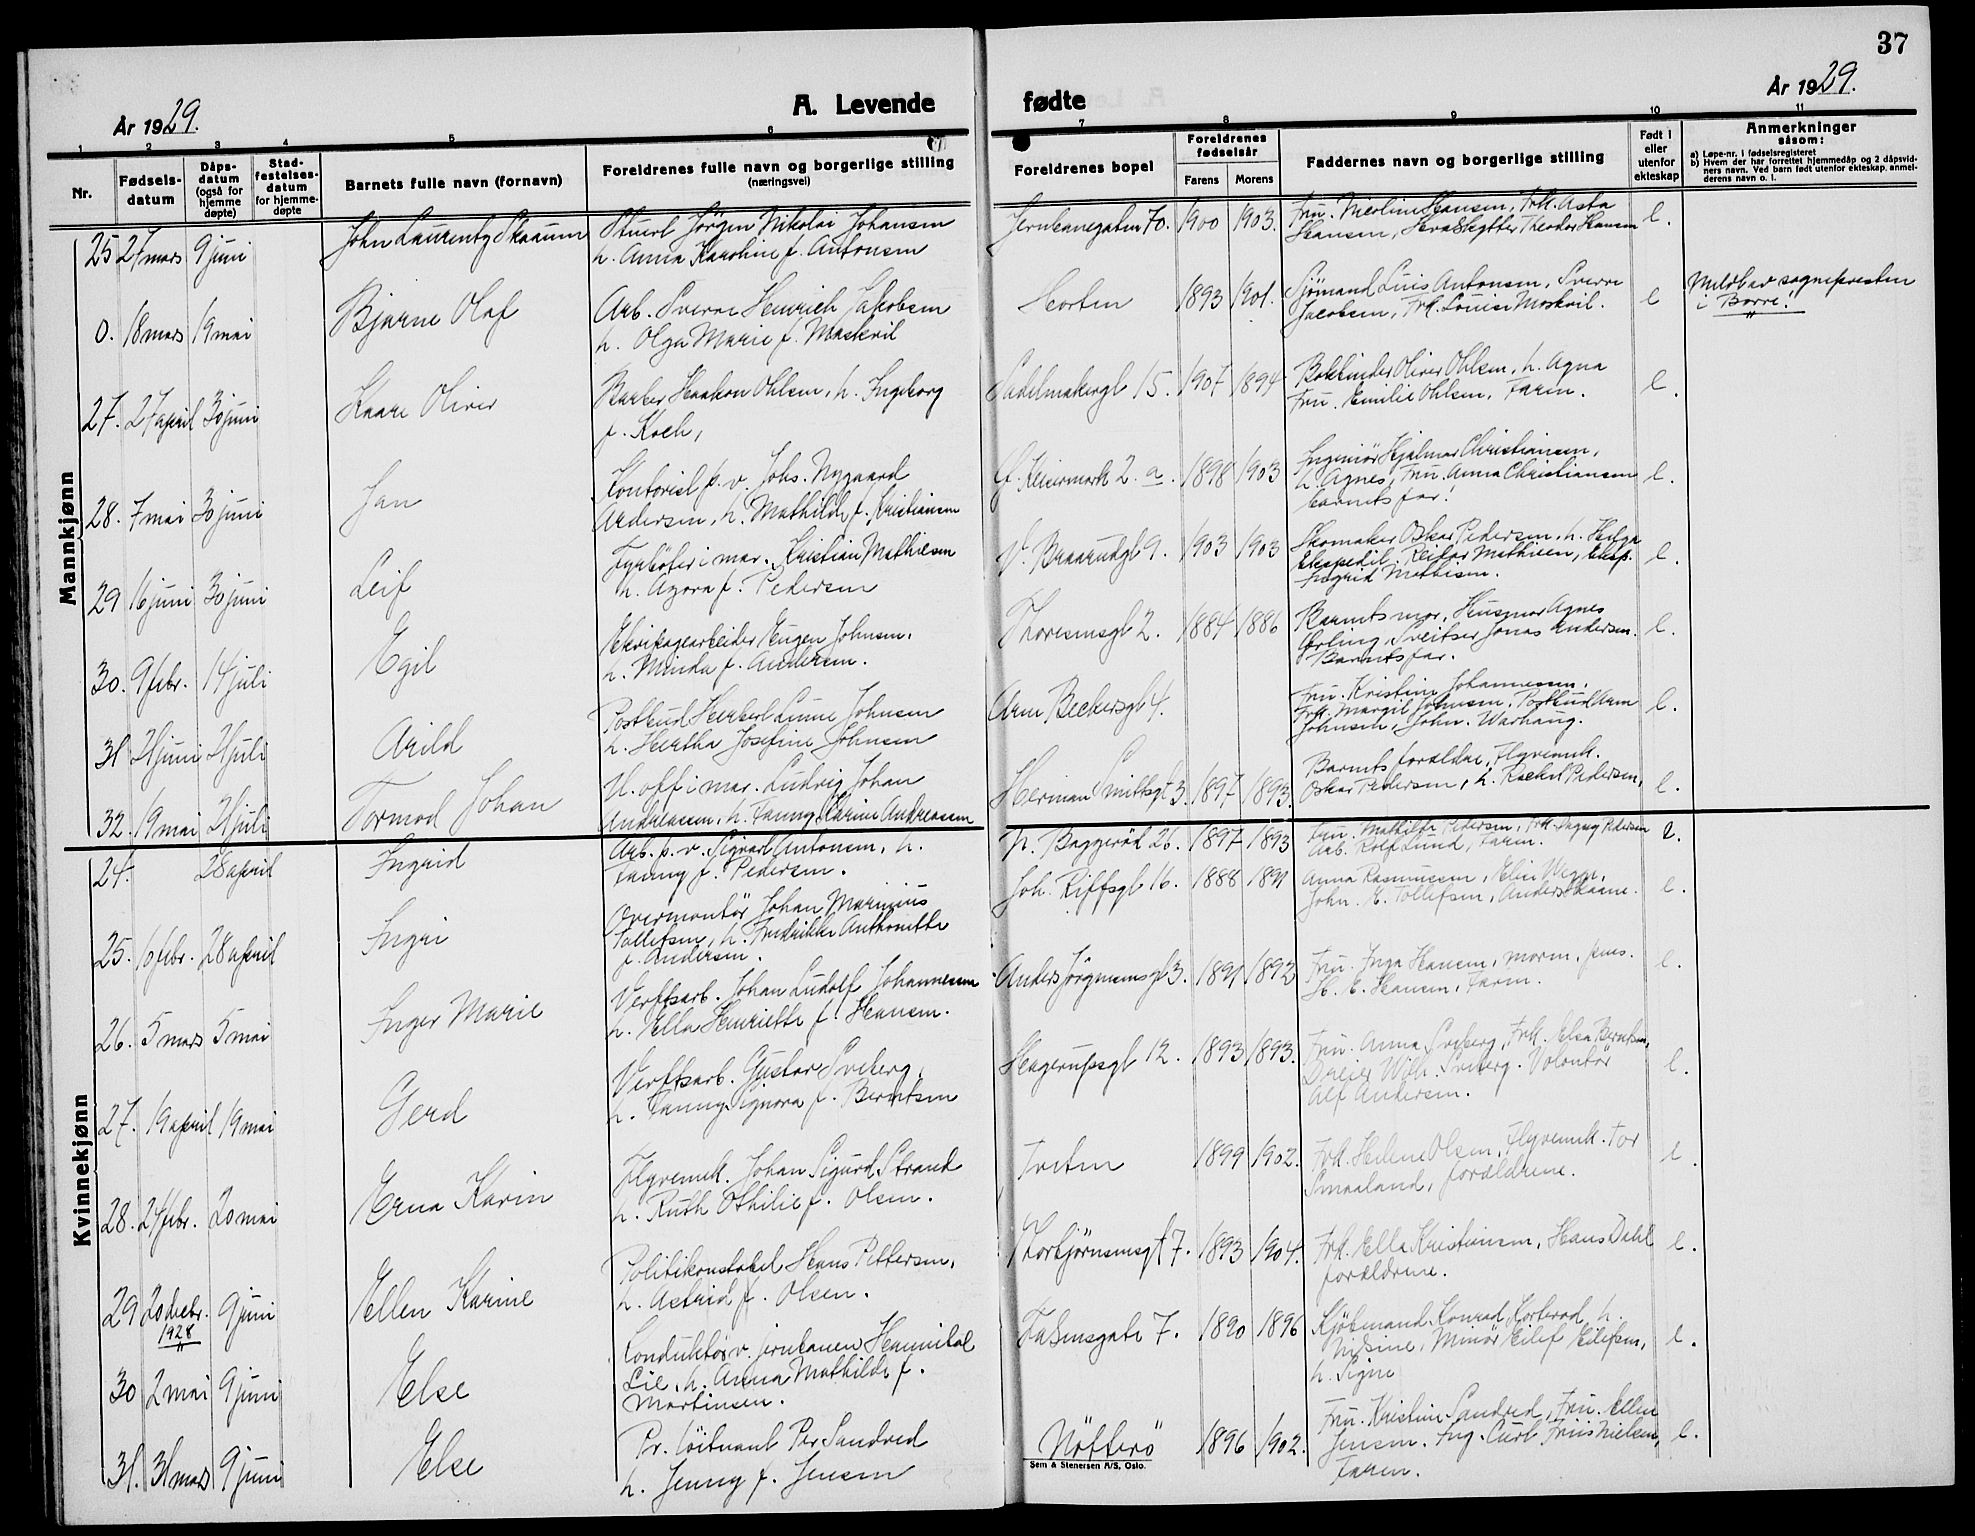 37
År 1929.
A. Levende
fødte
År 1929.
1 2 3 4 5 6 7 8 9 10 11
Nr.
Fødsels-
datum
Dåps-
datum
(også for
hjemme
døpte)
Stad-
festelses-
datum
for hjemme-
døpte
Barnets fulle navn (fornavn)
Foreldrenes fulle navn og borgerlige stilling
(næringsvei)
Foreldrenes bopel
Foreldrenes
fødselsår
Farens Morens
Faddernes navn og borgerlige stilling
Født i
eller
utenfor
ekteskap
Anmerkninger
såsom:
a) Løpe-nr. i fødselsregisteret
b) Hvem der har forrettet hjemmedåp og 2 dåpsvid-
ners navn. Ved barn født utenfor ekteskap, anmel-
derens navn o. l.
Mannkjønn
25 27 mars 9 juni John Laurentz Skaaum Stuert Jörgen Nikolai Johansen
h. Anna Karoline f. Antonsen
Jernbanegaten 70. 1900 1903. Fru. Nicoline Hansen, Frk. Asta
Hansen, Theodor Hansen e.
0. 18 mars 19 mai Bjarne Olaf Arb. Sverre Henrich Jakobsen
h. Olga Marie f. Maskvil
Horten 1893 1901. Sjömand Luis Antonsen, Sverre
Jacobsen, Frk. Louise Moskvil. e
Meldt av sognepresten
i Borre!
27. 27 april 30 juni Kaare Oliver Barber Haakon Ohlsen, h. Ingeborg
f. Koch,
Sadelmakergt 15. 1907 1894 Bokbinder Oliver Ohlsen, h. Agna
Fru. Emilie Ohlsen, Faren. e.
28. 7 mai 30 juni Jan Kontorist p. v. Johs. Nygaard
Andersen, h. Mathilde f. Kristiansen
2. a. 1898 1903 Ingeniör Hjalmar Christiansen,
h. Agnes, Fru. Anna Christiansen
barnets far! e.
29 16 juni 30 juni Leif Fyrböter i mar. Kristian Mathiesen
h. Agora f. Pedersen
V. Braarudgt 9. 1903 1903 Skomaker Oskar Pedersen, h. Helga
Ekspedit. Reidar Mathisen, Eksp.
Ingrid Mathisen. e.
30. 9 febr. 14 juli Egil Ekvipagearbeider Eugen Johnsen.
h. Minda f. Andersen.
Thoresensgt 2. 1884 1886 Barnets mor, Husmor Agnes
Erling, Sveitser Jonas Andersen.
Barnets far. e.
31 21 juni 21 juli Arild Postbud Herbert Lune Johnsen
h. Hertha Josefine Johnsen
Arne Beckersgt 4. Fru. Kristine Johannessen,
Frk. Margit Johnsen, Postbud Arne
Johnsen, John. Warhaug. e.
32. 19 mai 21 juli Tormod Johan U. off i mar. Ludvig Johan
Andreassen, h. Fanny Karine Andreassen
Herman Smittsgt 3. 1897 1893. Barnets foreldre, Flyvemek.
Oskar Pedersen, h. Rachel Pedersen, e.
Kvinnekjønn
24. 28 april Ingrid Arb. p. v. Sigvart Antonsen, h.
Fanny f. Pedersen.
N. Baggeröd 26. 1897 1893 Fru. Mathilde Pedersen, Frk. Dagny Pedersen
Arb. Rolf Lund, Faren. e.
25. 16 febr. 28 april Ingri Overmontör Johan Marinius
Tollefsen, h. Fredrikke Anthonette
f. Andersen.
Joh. Riffsgt 16. 1888 1891 Anna Rasmussen, Elin Wegn,
John. E. Tollefsen, Anders Skaane. e.
26. 5 mars 5 mai Inger Marie Verftsarb. Johan Ludolf Johannessen
h. Ella Henriette f. Hansen.
Anders Jörgensensgt 3. 1891 1892 Fru. Inga Hansen, morm. pens.
H. E. Hansen, Faren. e.
27. 19 april 19 mai Gerd Verftsarb. Gustav Sveberg,
h. Fanny Signora f. Berntsen
Hagerupsgt 12. 1893 1893. Fru. Anna Sveberg, Frk. Elsa Berntsen,
Dreier Wilh. Sveberg. Volontör
Alf Andersen. e.
28. 24 febr. 20 mai Erna Karin Flyvemek. Johan Sigurd Strand
h. Ruth Othilie f. Olsen.
Tveten 1899 1902. Frk. Helene Olsen, Flyvemek. Tor
Smaaland, forældrene. e.
29 20 decbr.
1928 9 juni Ellen Karine Politikonstabel Hans Pettersen,
h. Astrid f. Olsen.
Thorbjörnsensgt 7. 1893 1904. Frk. Ella Kristiansen, Hans Dahl
forældrene. e.
30 2 mai 9 juni Else Konduktör v. jernbanen Hannibal
Lie, h. Anna Mathilde f.
Martinsen.
Falsensgate 7. 1890 1896 Kjöbmand Konrad Horterod, h.
Nisine, Minör Eilef Eilefsen,
h. Signe e.
31. 31 mars 9 juni Else Pr. löitnant Per Sandved
h. Jenny f. Jensen
Nötterö 1896 1902. Fru. Kristine Sandved, Fru. Ellen
Jensen. Ing. Curt Friis Nielsen,
Faren. e.
Sem & Stenersen A/S, Oslo.